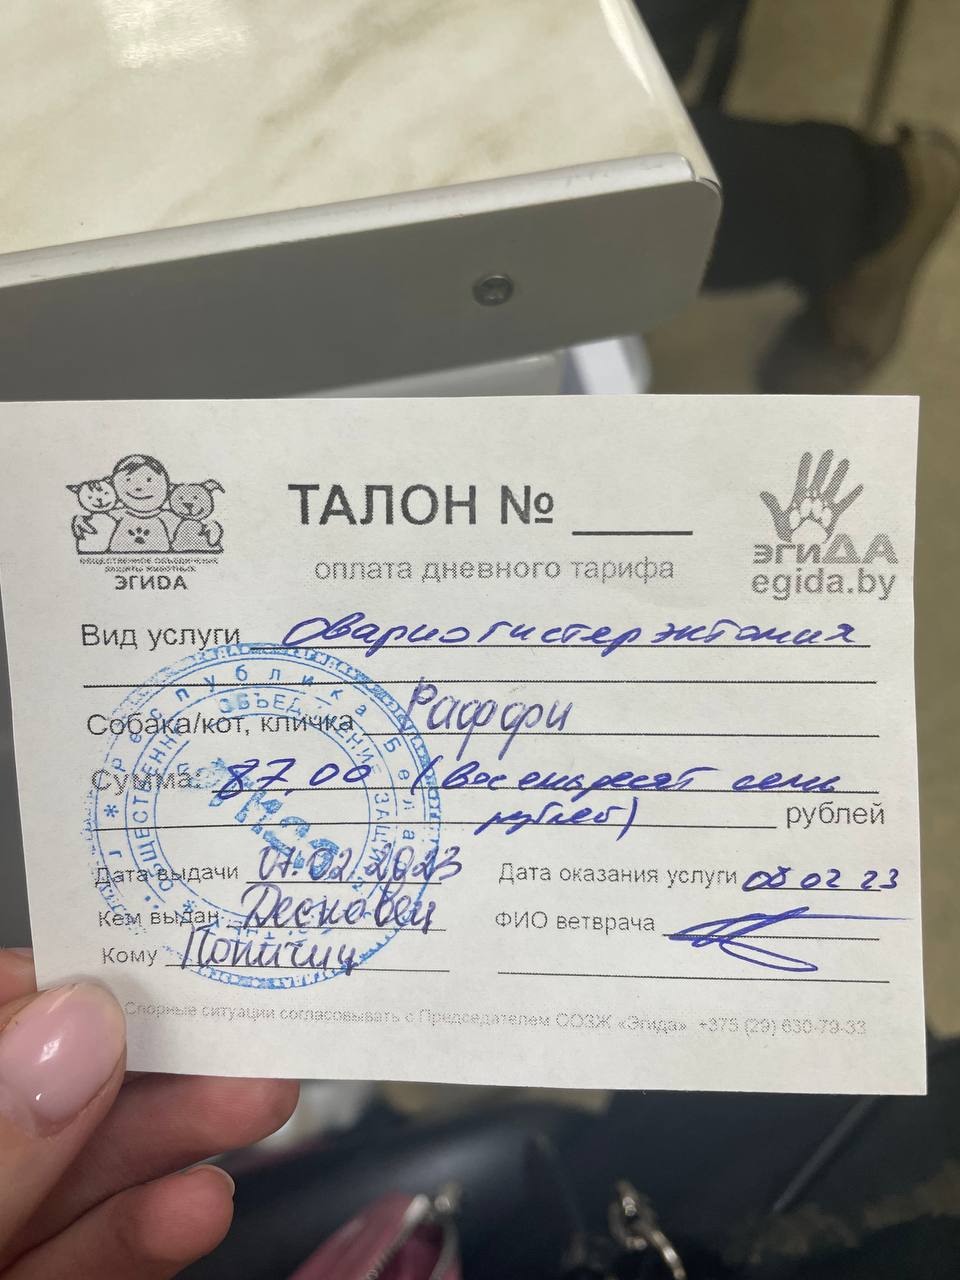 ТАЛОН № ____
оплата дневного тарифа
ОБЩЕСТВЕННОЕ ОБЪЕДИНЕНИЕ
ЗАЩИТЫ ЖИВОТНЫХ
ЭГИДА
эгиДА
egida.by
Вид услуги Овариогистерэктомия
Собака/кот, кличка Раффи
Сумма: 87,00 (восемьдесят семь
рублей) рублей
Дата выдачи 07.02.2023
Дата оказания услуги 08 02 23
Кем выдан Десковец
ФИО ветврача
Кому
Спорные ситуации согласовывать с Председателем СОЗЖ «Эгида» +375 (29) 630-79-33
Республика Беларусь
ОБЩЕСТВЕННОЕ ОБЪЕДИНЕНИЕ ЗАЩИТЫ